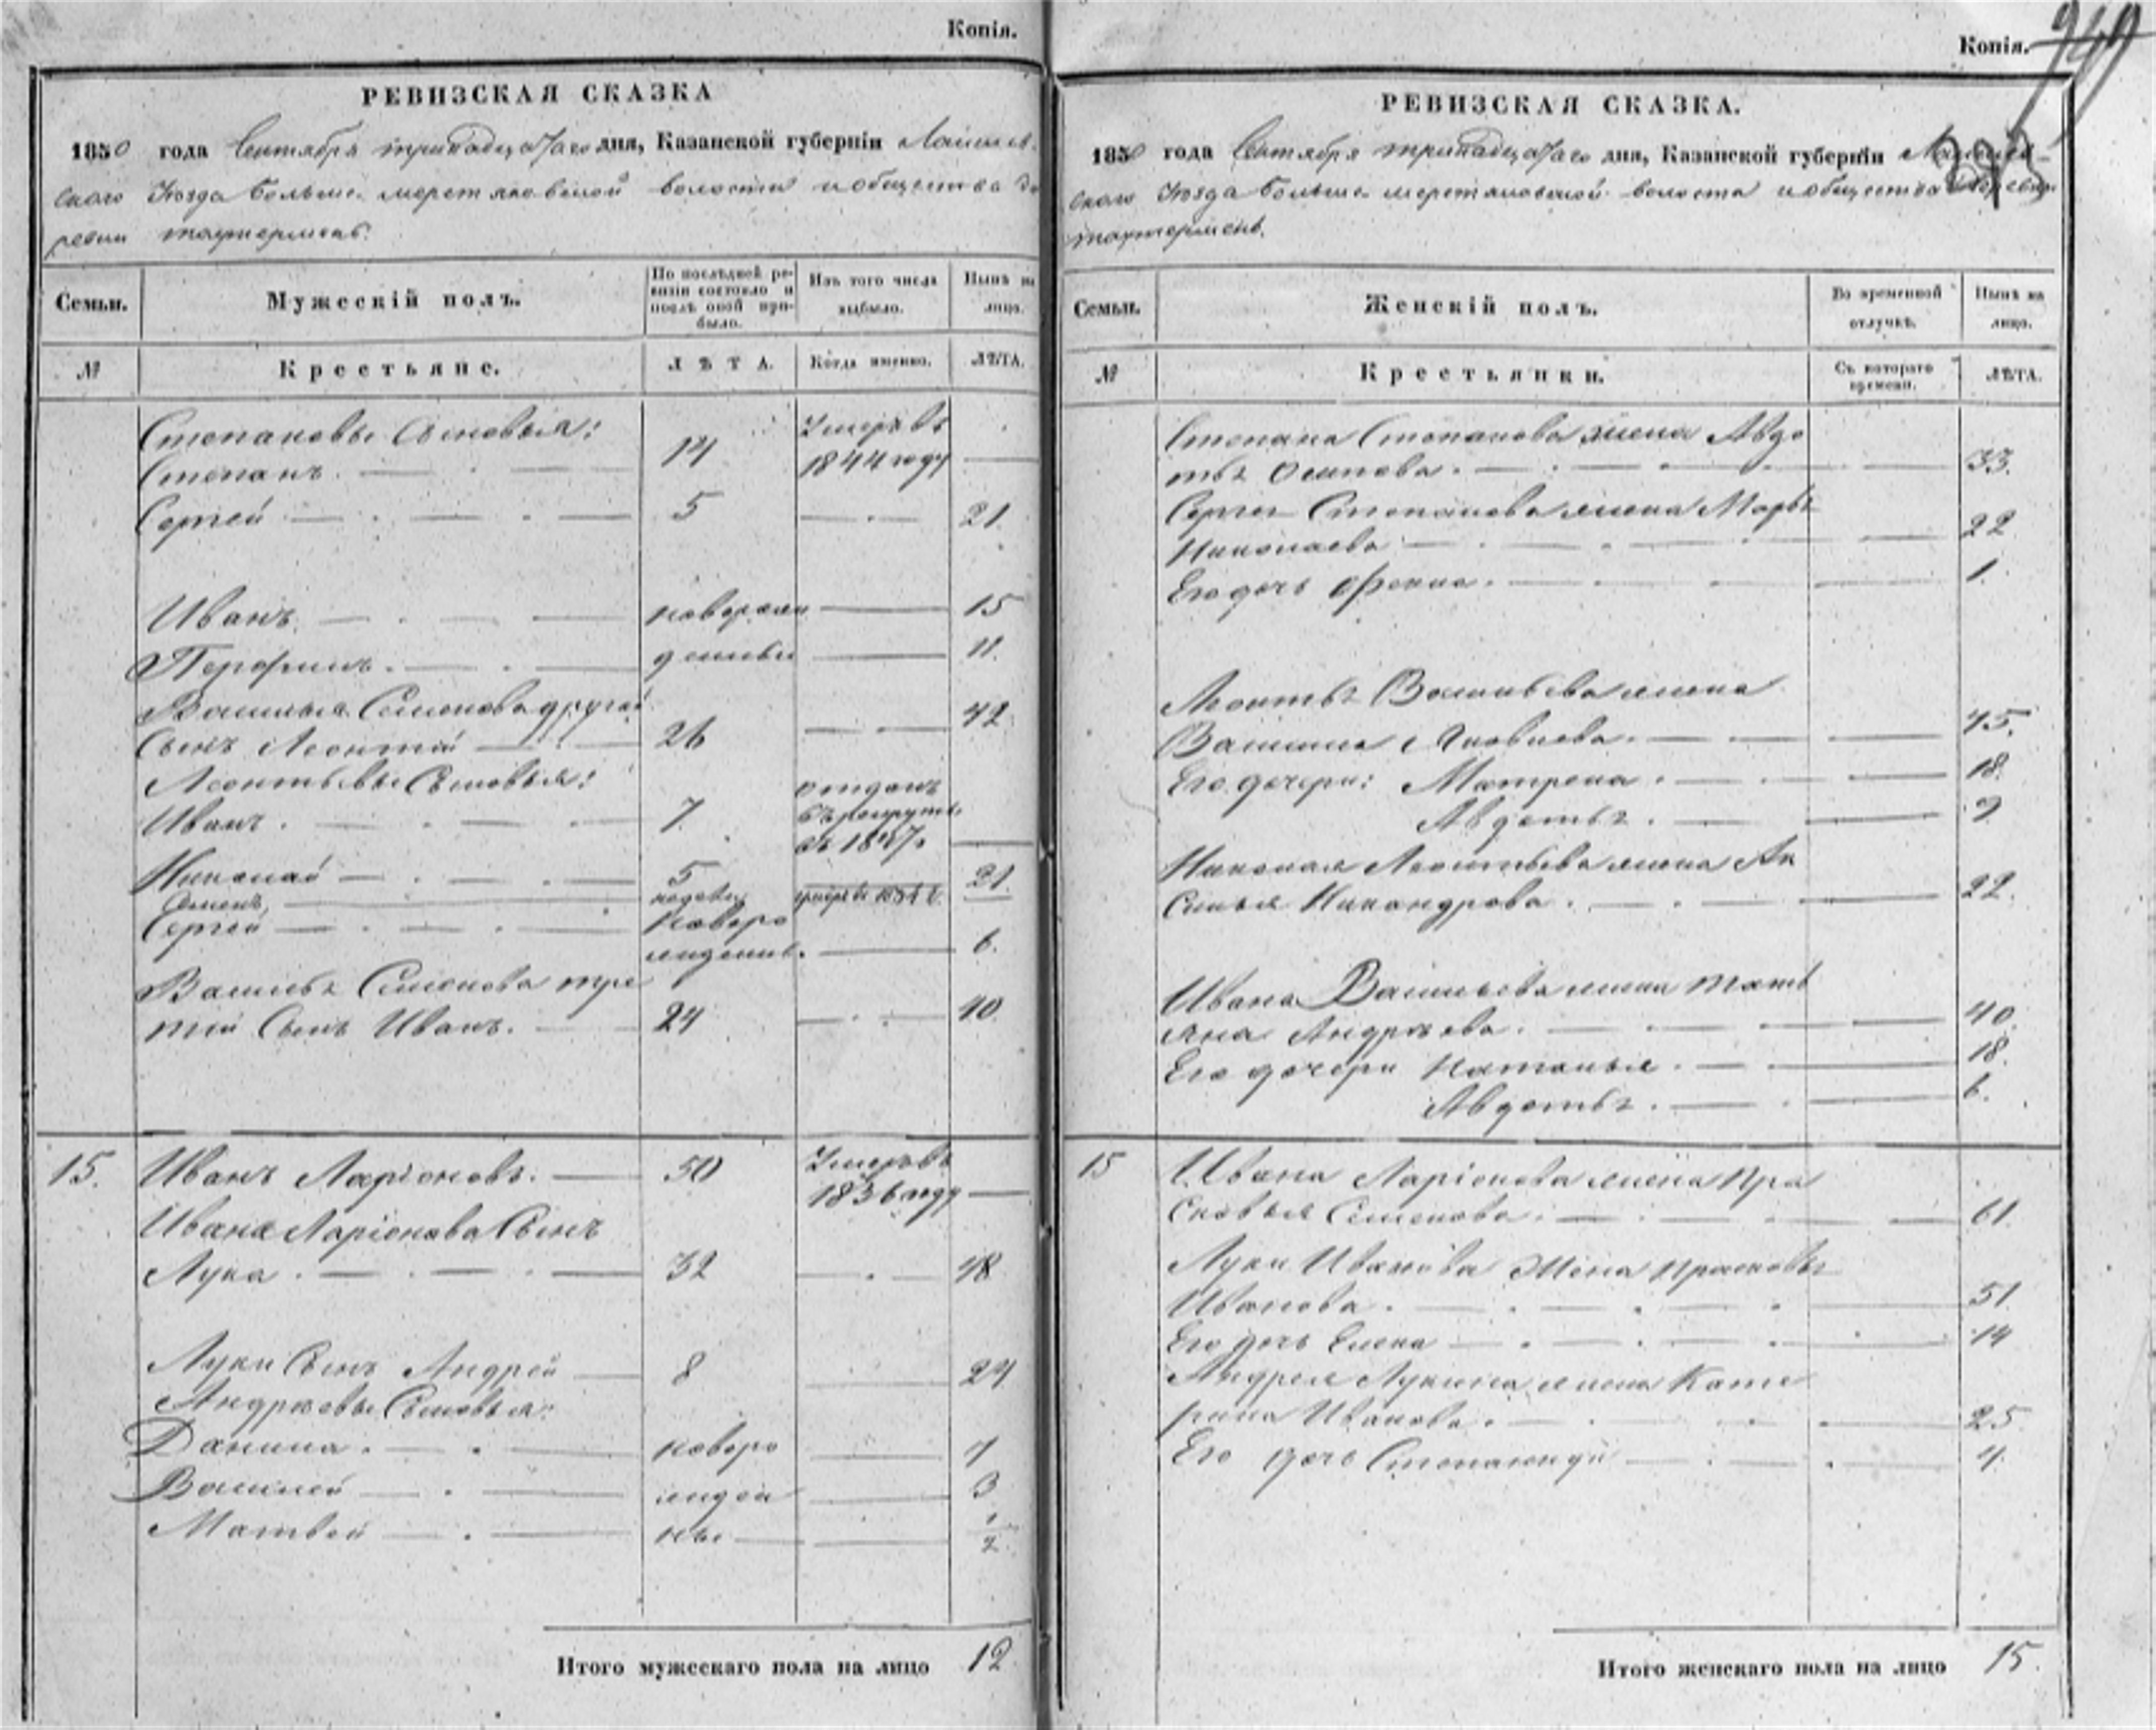 Копія.
РЕВИЗСКАЯ СКАЗКА
1850 года Сентября тринадцатаго дня, Казанской губерніи Лаишев-
скаго Уезда Больше меретяковской волости и общества де
ревни таутермень.
Семьи.
Мужескій полъ.
По послѣдней ре-
визіи состояло и
послѣ оной при-
было.
Изъ того числа
выбыло.
Нынѣ на
лицо.
№
Крестьяне.
ЛѢТА.
Когда именно.
ЛѢТА.
Степановы Сыновья:
Степанъ. 14 Умеръ въ 1844 году
Сергей 5 21.
Иванъ. новорож 15
Перфилъ. денные 11.
Василья Семенова другой
Сынъ Леонтий 26 42.
Леонтьевы Сыновья:
Иванъ. 7. отданъ въ рекруты въ 1847.
Николай 5 21.
Семенъ,
Сергей Новоро
жденный. 6.
Василья Семенова тре
тий Сынъ Иванъ. 24 40.
15. Иванъ Ларіоновъ. 50 Умеръ въ 1836 году
Ивана Ларіонова Сынъ
Лука. 32 48
Луки Сынъ Андрей 8 24
Андреевы Сыновья:
Данила. новоро 7
Василей жден 3
Матвей ные 1/2
Итого мужескаго пола на лицо 12
Копія.
949
РЕВИЗСКАЯ СКАЗКА.
1850 года Сентября тринадцатаго дня, Казанской губерніи Лаишев-
скаго Уезда Больше меретяковской волости и общества деревни
таутермень.
Семьи.
Женскій полъ.
Во временной
отлучкѣ.
Нынѣ на
лицо.
№
Крестьянки.
Съ котораго
времени.
ЛѢТА.
Степана Степанова жена Авдо
тья Осипова. 33.
Сергея Степанова жена Марья
Николаева 22
Его дочь Фекла. 1.
Леонтья Васильева жена
Василиса Яковлева. 45.
Его дочери: Матрена. 18.
Авдотья. 9
Николая Леонтьева жена Ак
синья Никандрова. 22.
Ивана Васильева жена Тать
яна Андреева. 40.
Его дочери Наталья. 18.
Авдотья. 6.
15 Ивана Ларіонова жена Пра
сковья Семенова. 61.
Луки Иванова Жена Прасковья
Иванова. 51.
Его дочь Елена 14
Андрея Лукина жена Кате
рина Иванова. 25
Его дочь Степанида 4.
Итого женскаго пола на лицо 15.